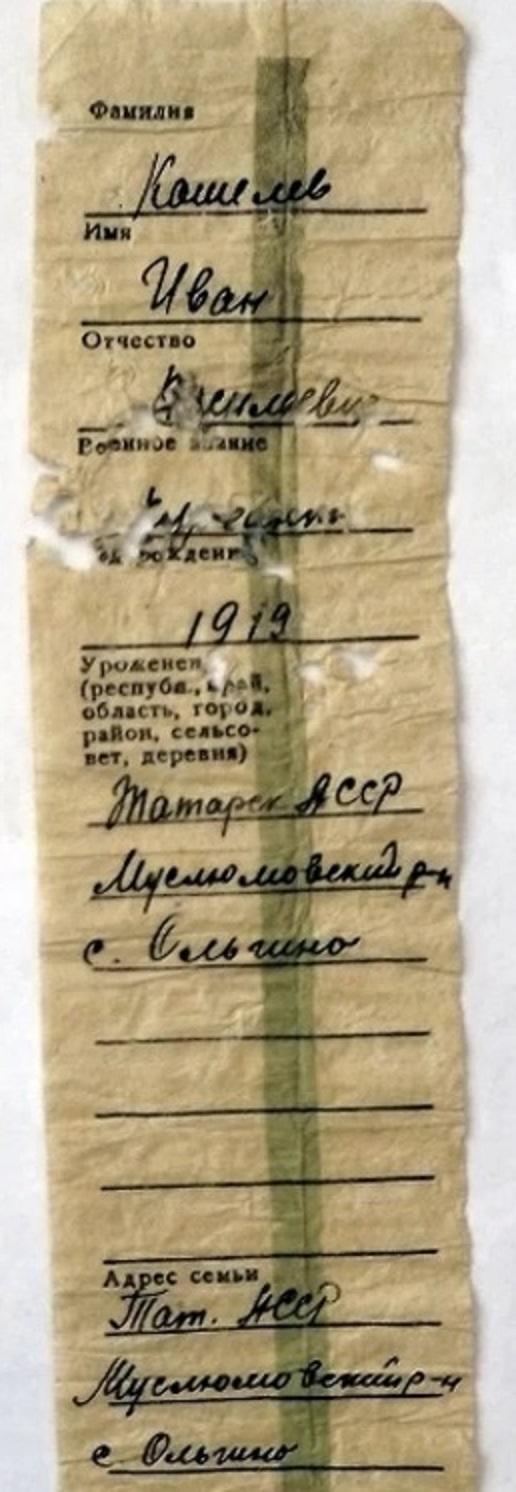 Фамилия
Кошелев
Имя
Иван
Отчество
Василевич
Военное звание
Год рождения
1919
Уроженец
(республ., край,
область, город,
район, сельсо-
вет, деревня)
Татарск АССР
Муслюмовский р-н
с. Ольгино
Адрес семьи
Тат. АССР
Муслюмовский р-н
с Ольгино